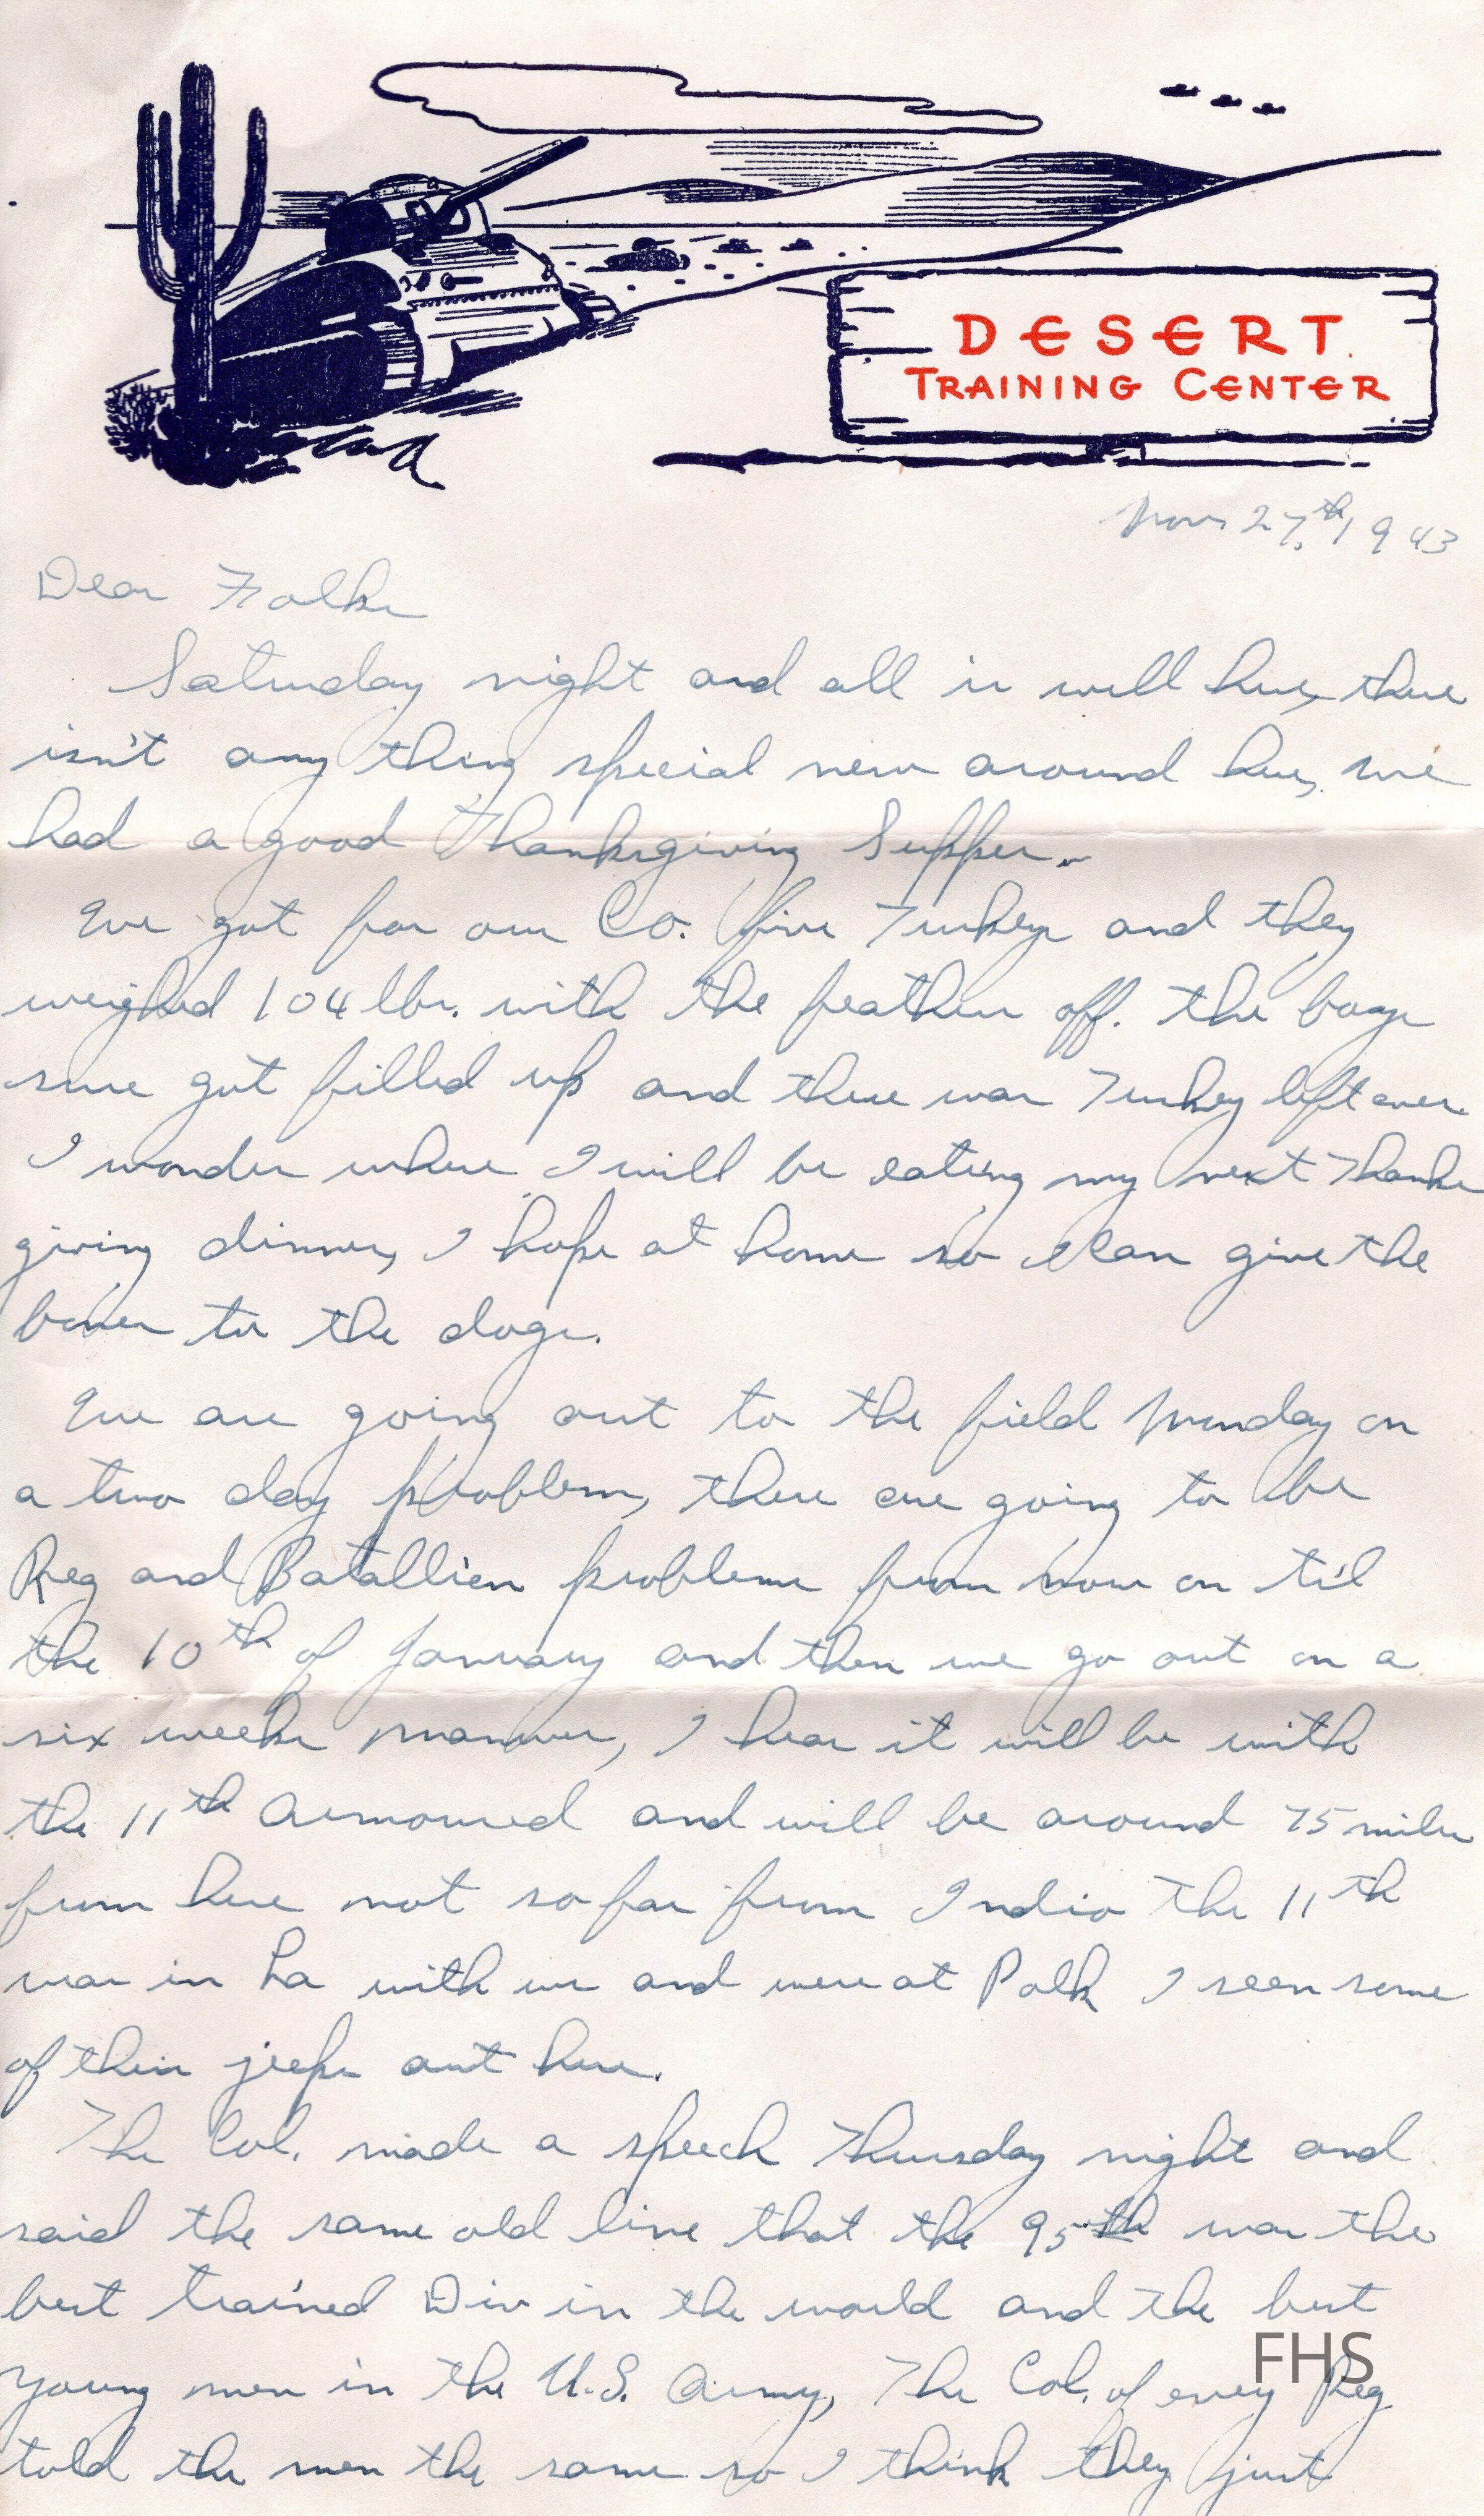 DESERT
TRAINING CENTER
Nov 27,th 1943
Dear Folks
Saturday night and all is well here, there
isn't any thing special new around here, we
had a good Thanksgiving Supper.
We got for our Co. five Turkeys and they
weighed 104 lbs. with the feathers off. the boys
sure got filled up and there was Turkey left over.
I wonder where I will be eating my next Thanks
giving dinner, I hope at home so I can give the
bones to the dogs.
We are going out to the field Monday on
a two day problem, there are going to be
Reg and Batallien problems from now on til
the 10th of January and then we go out on a
six weeks manuver, I hear it will be with
the 11th Armoured and will be around 75 miles
from here not so far from Indio the 11th
was in La with us and were at Polk I seen some
of their jeeps out here.
The Col. made a speech Thursday night and
said the same old line that the 95th was the
best trained Div in the world and the best
young men in the U.S. Army, The Col. of every Reg
told the men the same so I think they just
FHS